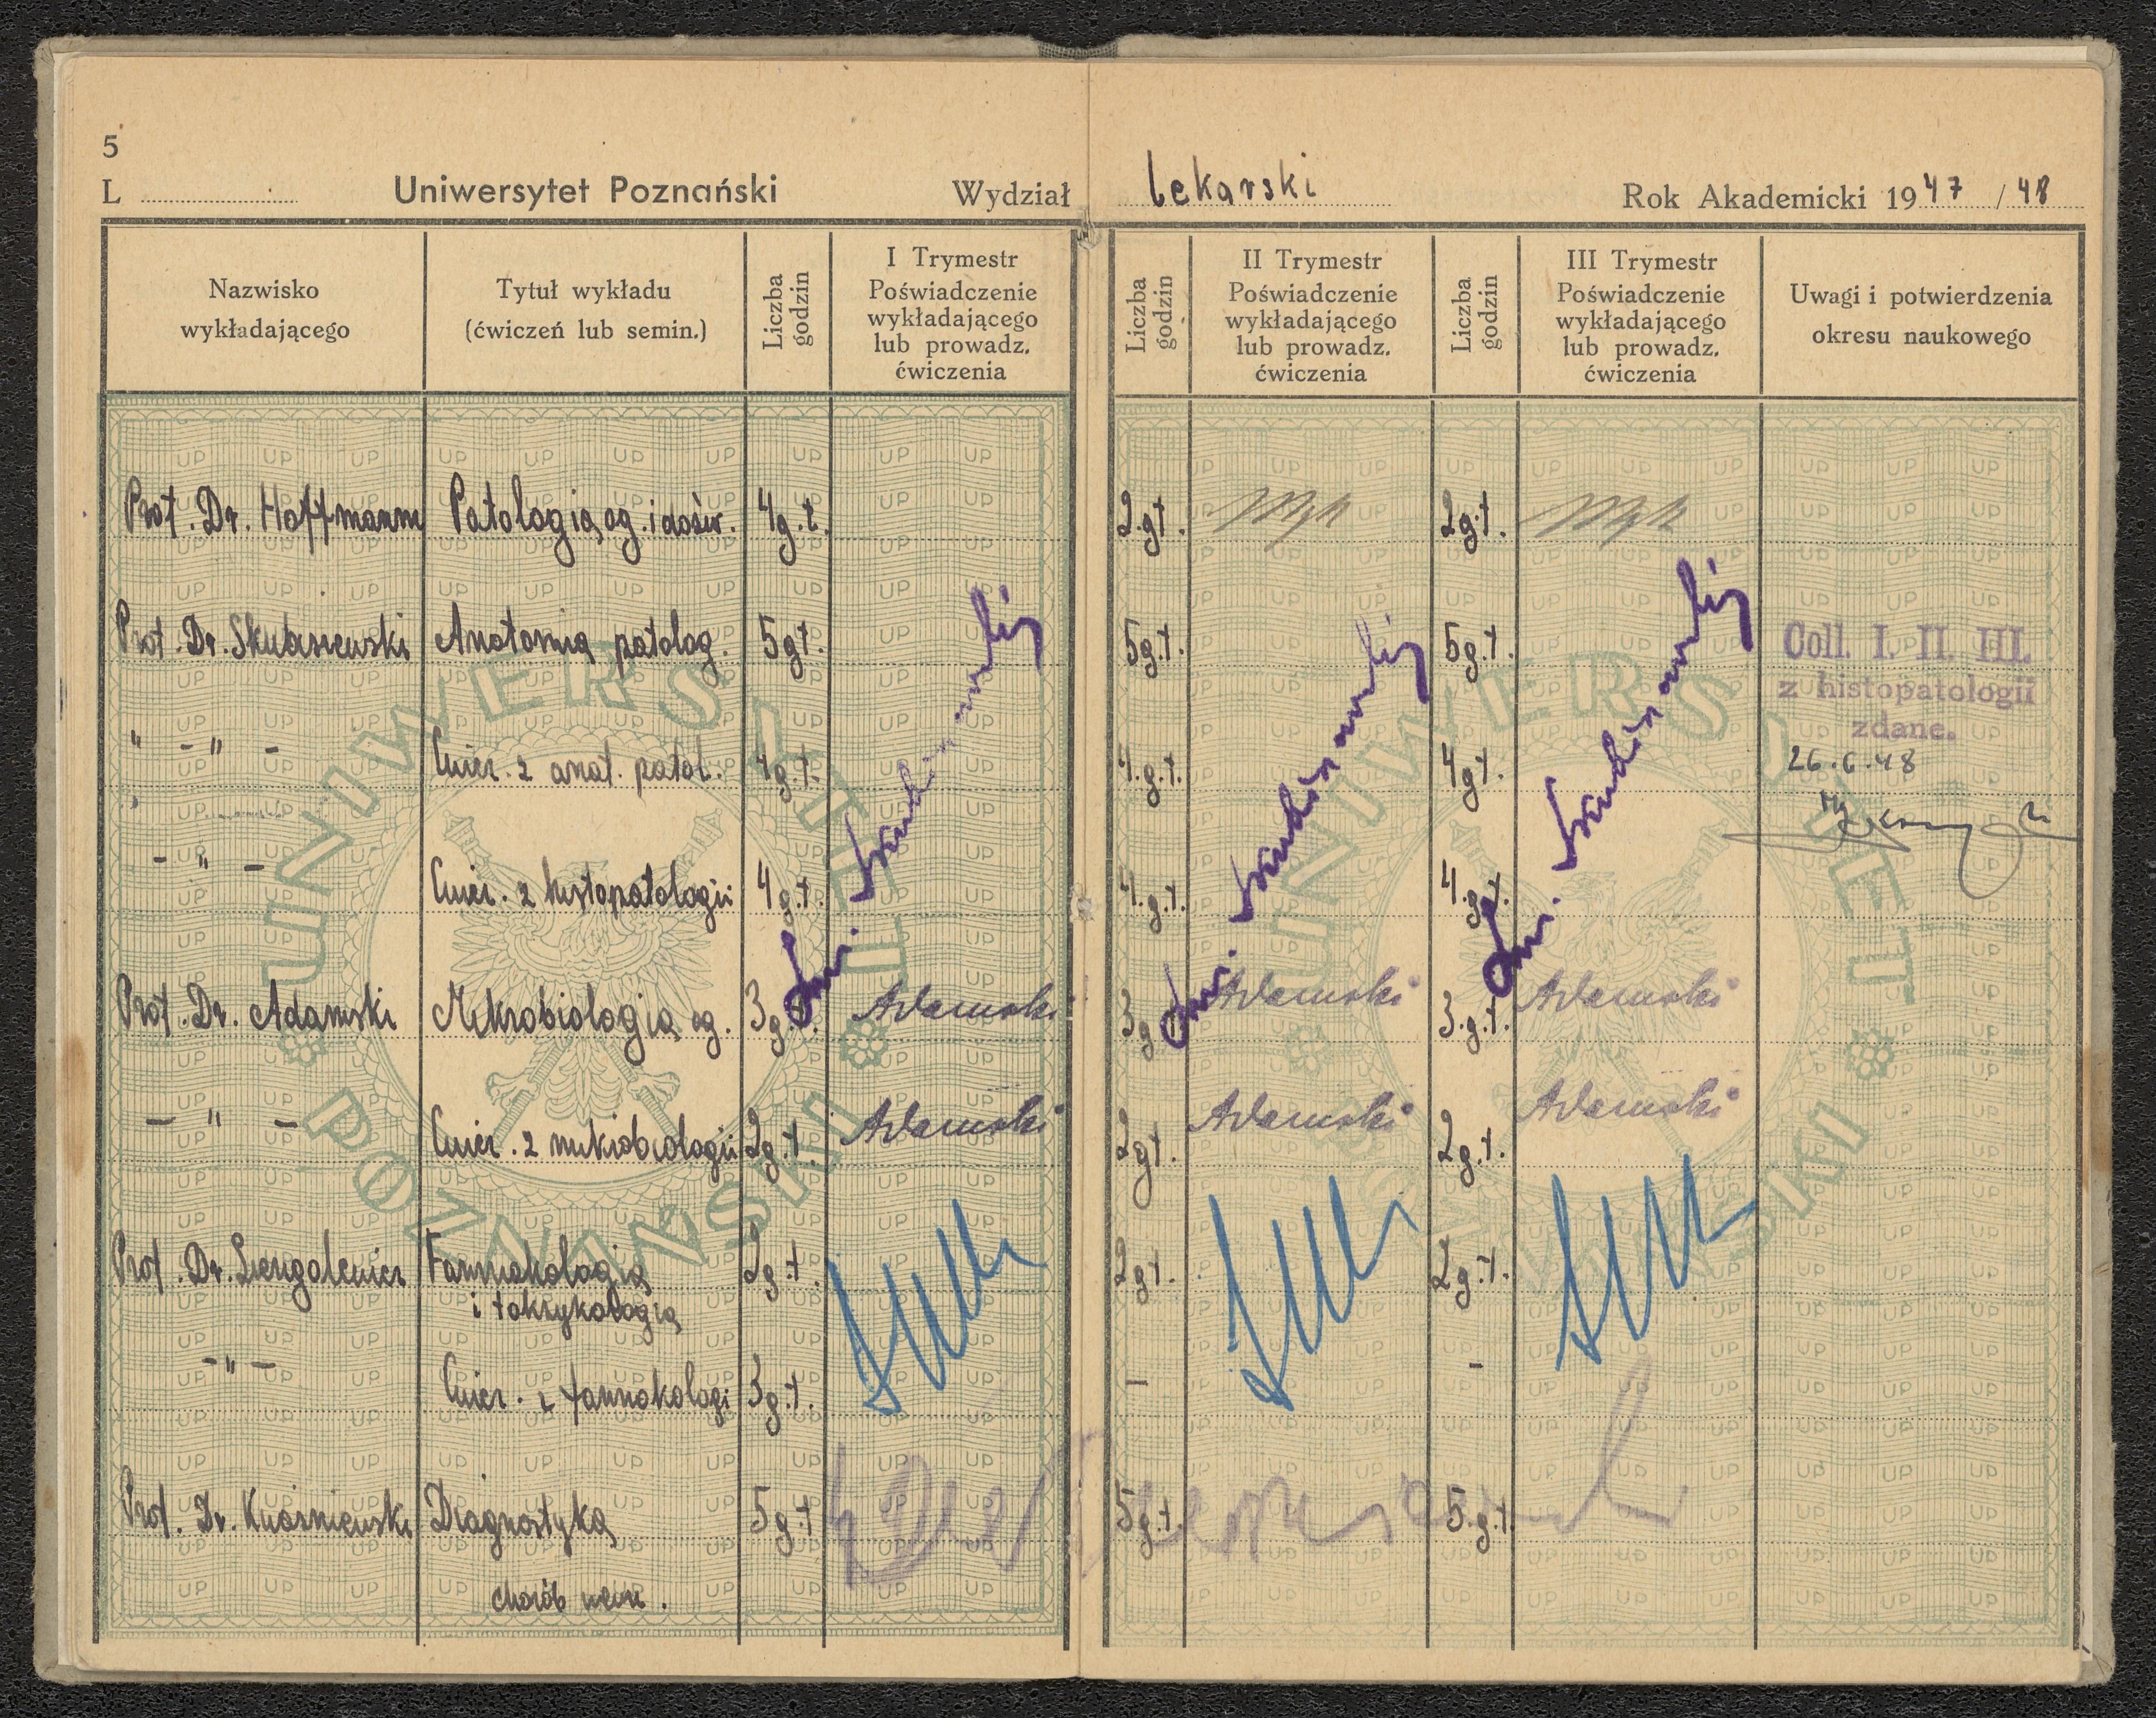 5
L Uniwersytet Poznański Wydział lekarski Rok Akademicki 1947/48
Nazwisko
wykładającego
Tytuł wykładu
(ćwiczeń lub semin.)
Liczba
godzin
I Trymestr
Poświadczenie
wykładającego
lub prowadz.
ćwiczenia
Liczba
godzin
II Trymestr
Poświadczenie
wykładającego
lub prowadz.
ćwiczenia
Liczba
godzin
III Trymestr
Poświadczenie
wykładającego
lub prowadz.
ćwiczenia
Uwagi i potwierdzenia
okresu naukowego
Prof. Dr. Hoffmann Patologia og. i dośw. 4g.t. 2.gt. 2g.t.
Prof. Dr. Skubiszewski Anatomia patolog. 5gt. 5g.t. 5g.t.
Coll. I. II. III.
z histopatologii
zdane.
26.6.48
" - " - Ćwicz. z anat. patol. 4g.t. 4.g.t. 4gt.
- " - Ćwicz. z histopatologii 4g.t. 4.g.t. 4.gt.
Prof. Dr. Adamski Mikrobiologia og. 3g.t. Adamski 3g Adamski 3.g.t. Adamski
- " - Ćwicz. z mikrobiologii 2g.t. Adamski 2gt. Adamski 2g.t. Adamski
Prof. Dr. Farmakologia 2g.t. 2gt. 2g.t.
i toksykologia
- " - Ćwicz. z farmakologi 3g.t. - -
Prof. Dr. Kwaśniewski Diagnostyka 5g.t 5g.t. 5.g.t.
chorób wewn.
UNIWERSYTET POZNAŃSKI
UNIWERSYTET POZNAŃSKI